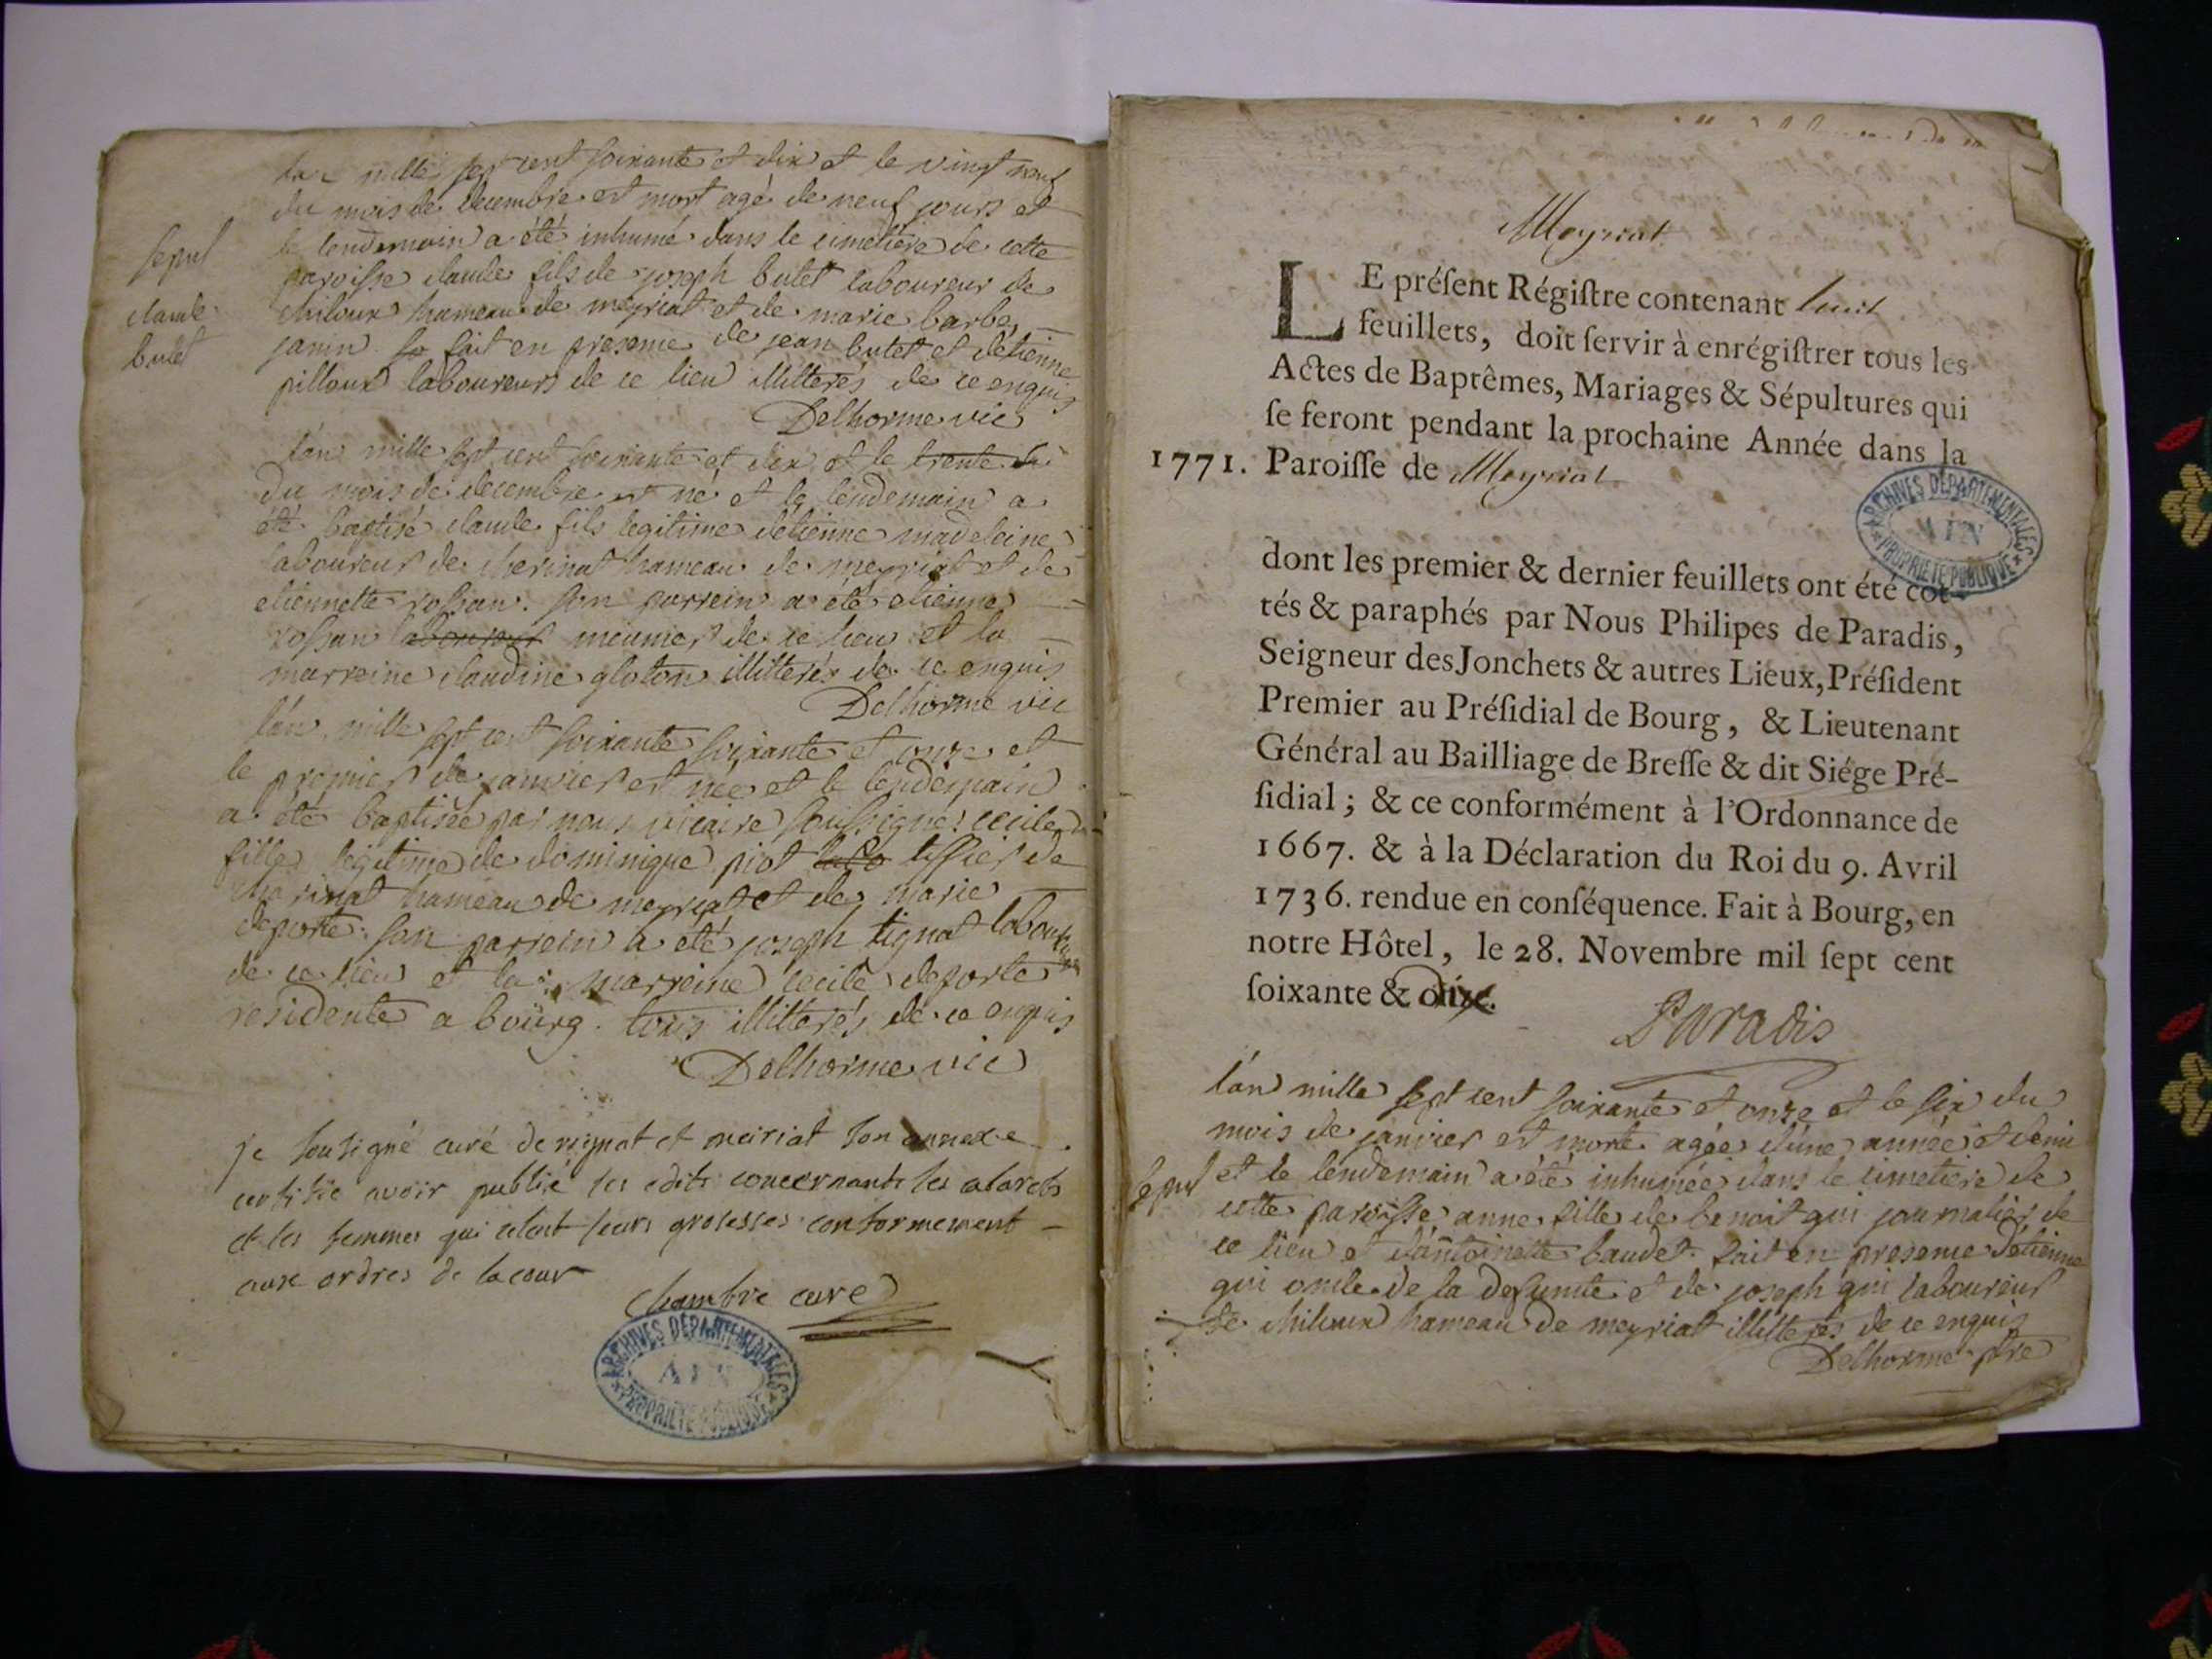 l'an mille sept cent soixante et dix et le vingt neuf
du mois de decembre est mort agé de neuf jours et
le lendemain a été inhumé dans le cimetière de cette
paroisse claude fils de joseph butet laboureur de
chiloux hameau de meyriat et de marie barbe
janin fait en presence de jean butet et detienne
pilloux laboureurs de ce lieu illitterés de ce enquis
Delhorme vic
sepul
claude
butet
l'an mille sept cent soixante et dix et le trente
du mois de decembre est né et le lendemain a
été baptisé claude fils legitime detienne madeleine
laboureur de cherinat hameau de meyriat et de
etiennette rossan. son parrein a été etienne
rossan laboureur meunier de ce lieu et la
marreine claudine gloton illitterés de ce enquis
Delhorme vic
l'an mille sept cent soixante soixante et onze et
le premier de janvier est née et le lendemain
a été baptisée par nous vicaire soussigné cecile
fille legitime de dominique piot tissier de
charinat hameau de meyriat et de marie
deporte. son parrein a été joseph tignat laboureur
de ce lieu et la marreine cecile deporte
residente a bourg. tous illitterés de ce enquis
Delhorme vic
je sousigné curé de rignat et meiriat son annexe
certifie avoir publié les edits concernants les
et les femmes qui celent leurs grosesses conformement
aux ordres de la cour
chambre curé
ARCHIVES DÉPARTEMENTALES
AIN
PROPRIÉTÉ PUBLIQUE
Meyriat
LE présent Régistre contenant huit
feuillets, doit servir à enrégistrer tous les
Actes de Baptêmes, Mariages & Sépultures qui
se feront pendant la prochaine Année dans la
1771. Paroisse de Meyriat
ARCHIVES DÉPARTEMENTALES
AIN
PROPRIÉTÉ PUBLIQUE
dont les premier & dernier feuillets ont été cot-
tés & paraphés par Nous Philipes de Paradis,
Seigneur des Jonchets & autres Lieux, Président
Premier au Présidial de Bourg, & Lieutenant
Général au Bailliage de Bresse & dit Siége Pré-
sidial; & ce conformément à l'Ordonnance de
1667. & à la Déclaration du Roi du 9. Avril
1736. rendue en conséquence. Fait à Bourg, en
notre Hôtel, le 28. Novembre mil sept cent
soixante & dix.
Paradis
l'an mille sept cent soixante et onze et le six du
mois de janvier est morte agée d'une année et demi
et le lendemain a été inhumée dans le cimetiere de
sepul
cette paroisse anne fille de benoit gui journalier de
ce lieu et d'antoinette baudet. fait en presence d'etienne
gui oncle de la defunte et de joseph gui laboureur
de chiloux hameau de meyriat illitterés de ce enquis
Delhorme ptre